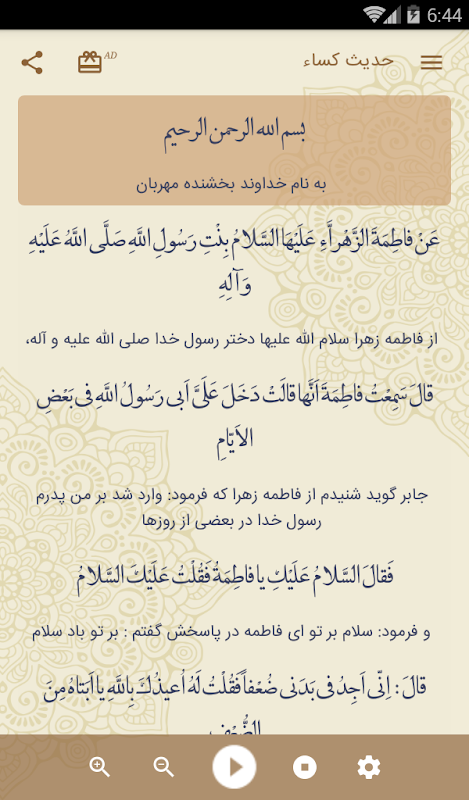 6:44
حدیث کساء
AD
بسم الله الرحمن الرحیم
به نام خداوند بخشنده مهربان
عَنْ فاطِمَةَ الزَّهْراَّءِ عَلَیْهَا السَّلامُ بِنْتِ رَسُولِ اللَّهِ صَلَّی اللَّهُ عَلَیْهِ
وَآلِهِ
از فاطمه زهرا سلام الله علیها دختر رسول خدا صلی الله علیه و آله،
قالَ سَمِعْتُ فاطِمَةَ اَنَّها قالَتْ دَخَلَ عَلَیَّ اَبی رَسُولُ اللَّهِ فی بَعْضِ
الاَیّامِ
جابر گوید شنیدم از فاطمه زهرا که فرمود: وارد شد بر من پدرم
رسول خدا در بعضی از روزها
فَقالَ السَّلامُ عَلَیْكِ یا فاطِمَةُ فَقُلْتُ عَلَیْكَ السَّلامُ
و فرمود: سلام بر تو ای فاطمه در پاسخش گفتم : بر تو باد سلام
قالَ : اِنّی اَجِدُ فی بَدَنی ضُعْفاً فَقُلْتُ لَهُ اُعیذُكَ بِاللَّهِ یا اَبَتاهُ مِنَ
الضُّعْفِ